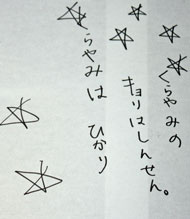 くらやみの
キョリはしんせん。
くらやみは
ひかり